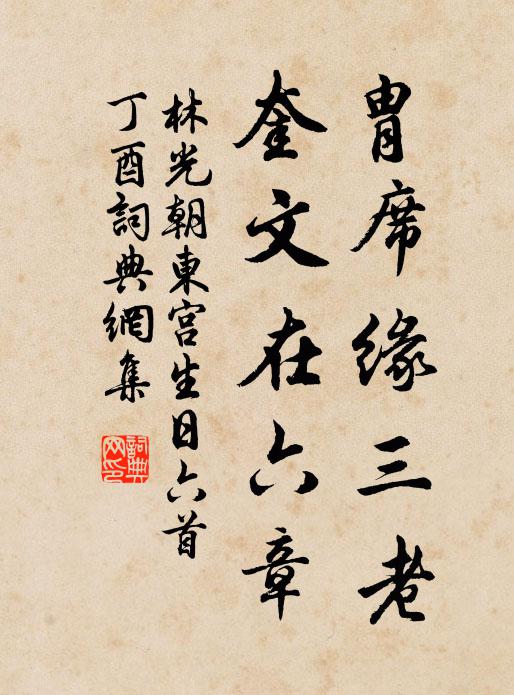 胄席缘三老
奎文在六章
林光朝東宫生日六首
丁酉詞典網集
詞典網印